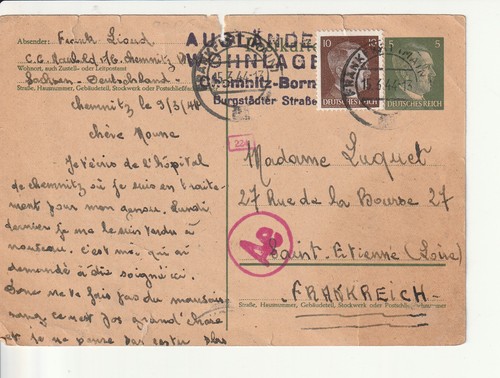 Absender: Frank Lioud
C.C. s/c. Chemnitz
Wohnort, auch Zustell- oder Leitpostamt
Sachsen - Deutschland -
Straße, Hausnummer, Gebäudeteil, Stockwerk oder Postschließfach
Postkarte
AUSLÄNDE
WOHNLAGE
Chemnitz-Born
Burgstädter Straße
15.3.44-13
FRANK
15.3.44-1
10 10
DEUTSCHES REICH
5 5
DEUTSCHES REICH
224
Ae
Chemnitz le 9/3/44
Chère Moune
Je t'écris de l'hôpital
de Chemnitz où je suis en traite-
ment pour mon genou. Lundi
dernier je me le suis tordu à
nouveau. c'est moi qui ai
demandé à être soigné ici.
Donc ne te fais pas du mauvais
sang ce n'est pas grand'chose
et je ne pense pas rester plus
Madame Luquet
27 Rue de la Bourse 27
Saint-Etienne (Loire)
FRANKREICH -
Straße, Hausnummer, Gebäudeteil, Stockwerk oder Postschließfach